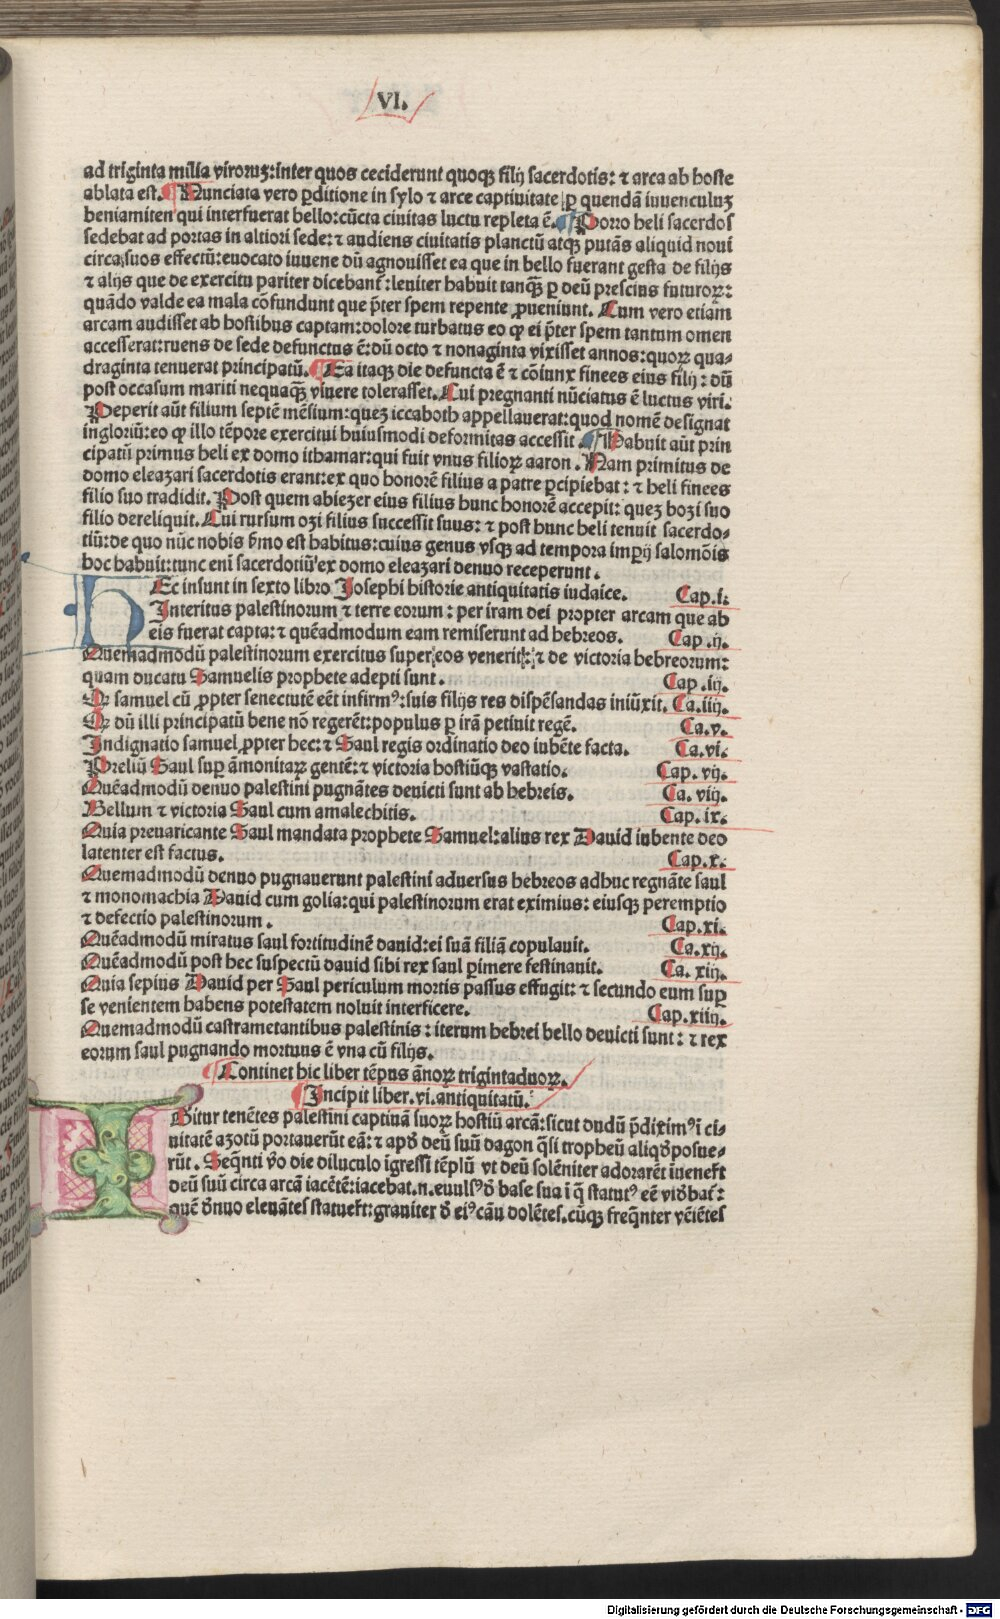 VI.
ad triginta milia viroruꝫ: inter quos ceciderunt quoqꝫ filij sacerdotis: ⁊ arca ab hoste
ablata est. Nunciata vero ꝑditione in sylo ⁊ arce captiuitate ꝑ quendā iuuenculuꝫ
beniamiten qui interfuerat bello: cūcta ciuitas luctu repleta ē. Porro heli sacerdos
sedebat ad portas in altiori sede: ⁊ audiens ciuitatis planctū atqꝫ putās aliquid noui
circa suos effectū: euocato iuuene dū agnouisset ea que in bello fuerant gesta de filijs
⁊ alijs que de exercitu pariter dicebant̄: leuiter habuit tanq̄ꝫ ꝑ deū prescius futuroꝝ:
quādo valde ea mala cōfundunt que p̄ter spem repente ꝓueniunt. Cum vero etiam
arcam audisset ab hostibus captam: dolore turbatus eo ꝙ ei p̄ter spem tantum omen
accesserat: ruens de sede defunctus ē: dū octo ⁊ nonaginta vixisset annos: quoꝝ qua-
draginta tenuerat principatū. Ea itaqꝫ die defuncta ē ⁊ cōiunx finees eius filij: dū
post occasum mariti nequaq̄ꝫ viuere tolerasset. Cui pregnanti nūciatus ē luctus viri.
Peperit aūt filium septē mēsium: queꝫ iccaboth appellauerat: quod nomē designat
ingloriū: eo ꝙ illo tēpore exercitui huiusmodi deformitas accessit. Habuit aūt prin
cipatū primus heli ex domo ithamar: qui fuit vnus filioꝝ aaron. Nam primitus de
domo eleazari sacerdotis erant: ex quo honorē filius a patre ꝑcipiebat: ⁊ heli finees
filio suo tradidit. Post quem abiezer eius filius hunc honorē accepit: queꝫ bozi suo
filio dereliquit. Cui rursum ozi filius successit suus: ⁊ post hunc heli tenuit sacerdo-
tiū: de quo nūc nobis ẜmo est habitus: cuius genus vsqꝫ ad tempora imꝑij salomōis
hoc habuit: tunc eni sacerdotiū ex domo eleazari denuo receperunt.
HEc insunt in sexto libro Josephi historie antiquitatis iudaice. Cap.i.
Interitus palestinorum ⁊ terre eorum: per iram dei propter arcam que ab
eis fuerat capta: ⁊ quēadmodum eam remiserunt ad hebreos. Cap.ij.
Quemadmodū palestinorum exercitus super eos venerit: ⁊ de victoria hebreorum:
quam ducatu Samuelis prophete adepti sunt. Cap.iij.
Qꝛ samuel cū ꝓpter senectutē eēt infirmꝰ: suis filijs res dispēsandas iniūxit. Ca.iiij.
Qꝛ dū illi principatū bene nō regerēt: populus ꝑ irā petiuit regē. Ca.v.
Indignatio samuel ꝓpter hec: ⁊ Saul regis ordinatio deo iubēte facta. Ca.vi.
Preliū Saul suꝑ āmonitaꝝ gentē: ⁊ victoria hostiūqꝫ vastatio. Cap. vij.
Quēadmodū denuo palestini pugnātes deuicti sunt ab hebreis. Ca. viij.
Bellum ⁊ victoria Saul cum amalechitis. Cap. ix.
Quia preuaricante Saul mandata prophete Samuel: alius rex Dauid iubente deo
latenter est factus. Cap.x.
Quemadmodū denuo pugnauerunt palestini aduersus hebreos adhuc regnāte saul
⁊ monomachia Dauid cum golia: qui palestinorum erat eximius: eiusqꝫ peremptio
⁊ defectio palestinorum. Cap.xi.
Quēadmodū miratus saul fortitudinē dauid: ei suā filiā copulauit. Ca.xij.
Quēadmodū post hec suspectū dauid sibi rex saul ꝑimere festinauit. Ca. xiij.
Quia sepius Dauid per Saul periculum mortis passus effugit: ⁊ secundo eum suꝑ
se venientem habens potestatem noluit interficere. Cap.xiiij.
Quemadmodū castrametantibus palestinis: iterum hebrei bello deuicti sunt: ⁊ rex
eorum saul pugnando mortuus ē vna cū filijs.
Continet hic liber tēpus ānoꝝ trigintaduoꝝ.
Incipit liber.vi.antiquitatū.
IGitur tenētes palestini captiuā suoꝝ hostiū arcā: sicut dudū p̄diximꝰ ī ci-
uitatē azotū portauerūt eā: ⁊ apđ deū suū dagon q̄si tropheū aliqđ posue-
rūt. Seq̄nti ꝟo die diluculo īgressi tēplū vt deū solēniter adorarēt īuener̄t
deū suū circa arcā iacētē: iacebat.n.euulsꝰ đ base sua ī q̄ statutꝰ eē viđbat̄:
quē đnuo eleuātes statuer̄t: grauiter đ eiꝰ cāu dolētes. cūqꝫ freq̄nter vēiētes
Digitalisierung gefördert durch die Deutsche Forschungsgemeinschaft - DFG